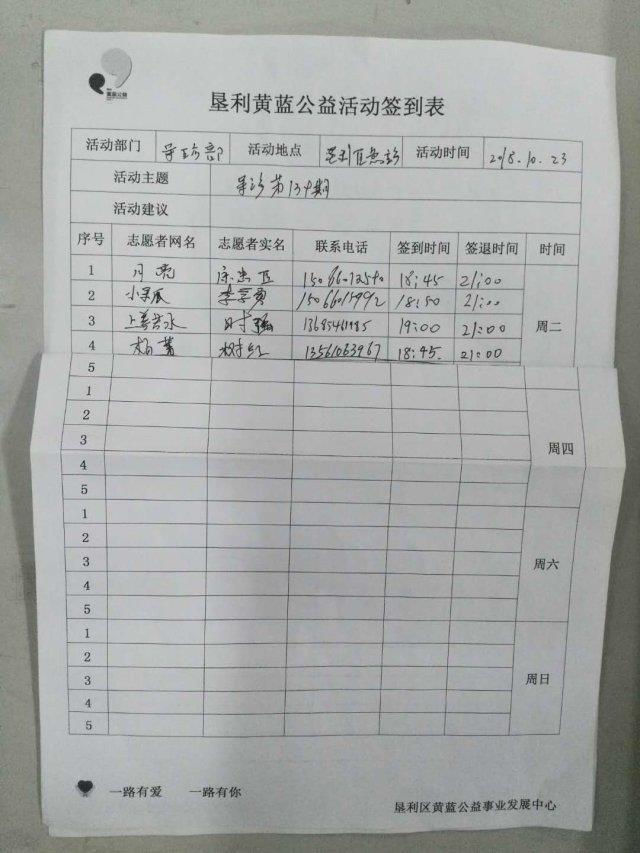 黄蓝公益
垦利黄蓝公益活动签到表
活动部门 活动地点 活动时间 2018.10.23
活动主题 第134期
活动建议
序号 志愿者网名 志愿者实名 联系电话 签到时间 签退时间 时间
1 18:45 21:00
2 18:50 21:00
3 上善若水 19:00 21:00 周二
4 13561063967 18:45 21:00
5
1
2
3 周四
4
5
1
2
3 周六
4
5
1
2
3 周日
4
5
一路有爱 一路有你
垦利区黄蓝公益事业发展中心